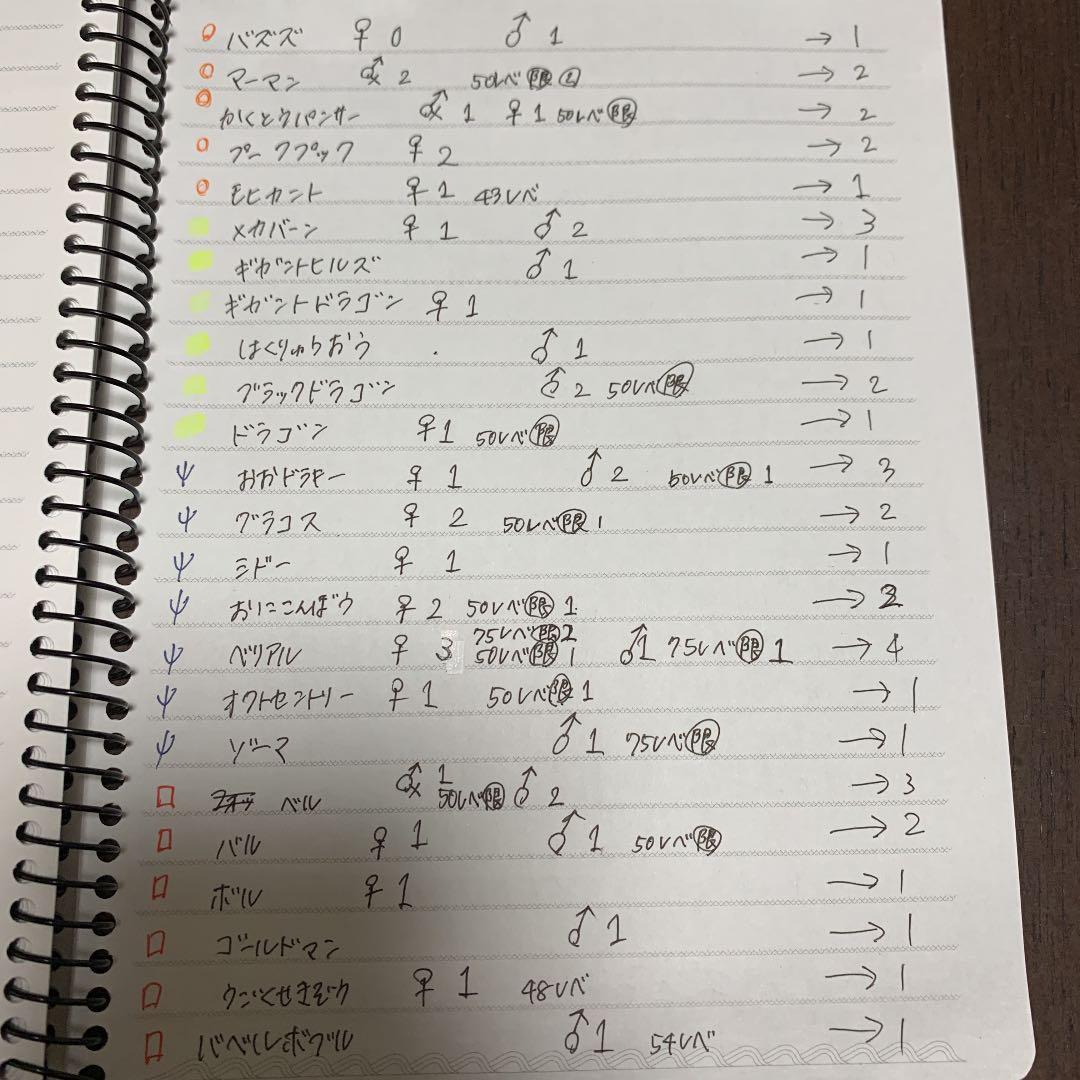 バズズ ♀ 0 ♂ 1 → 1
マーマン ⚥ 2 50レベ限② → 2
かくとうパンサー ⚥ 1 ♀ 1 50レベ限 → 2
プークプック ♀ 2 → 2
モヒカント ♀ 1 43レベ → 1
メカバーン ♀ 1 ♂ 2 → 3
ギガントヒルズ ♂ 1 → 1
ギガントドラゴン ♀ 1 → 1
はくりゅうおう ♂ 1 → 1
ブラックドラゴン ♂ 2 50レベ限 → 2
ドラゴン ♀1 50レベ限 → 1
おおドラキー ♀ 1 ♂ 2 50レベ限 1 → 3
グラコス ♀ 2 50レベ限 1 → 2
シドー ♀ 1 → 1
おにこんぼう ♀ 2 50レベ限 1 → 2
75レベ限2
ベリアル ♀ 3 50レベ限 1 ♂1 75レベ限 1 → 4
オクトセントリー ♀ 1 50レベ限 1 → 1
ゾーマ ♂ 1 75レベ限 → 1
ベル ⚥ 1 50レベ限 ♂ 2 → 3
バル ♀ 1 ♂ 1 50レベ限 → 2
ボル ♀ 1 → 1
ゴールドマン ♂ 1 → 1
うごくせきぞう ♀ 1 48レベ → 1
バベルボブル ♂ 1 54レベ → 1